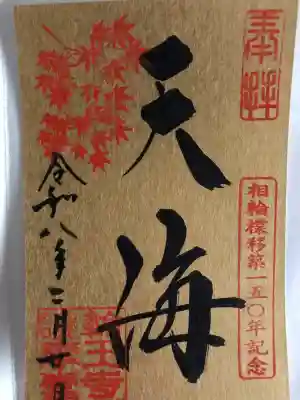 奉拝
相輪橖移築一五〇年記念
天海
令和八年二月廿日
輪王寺